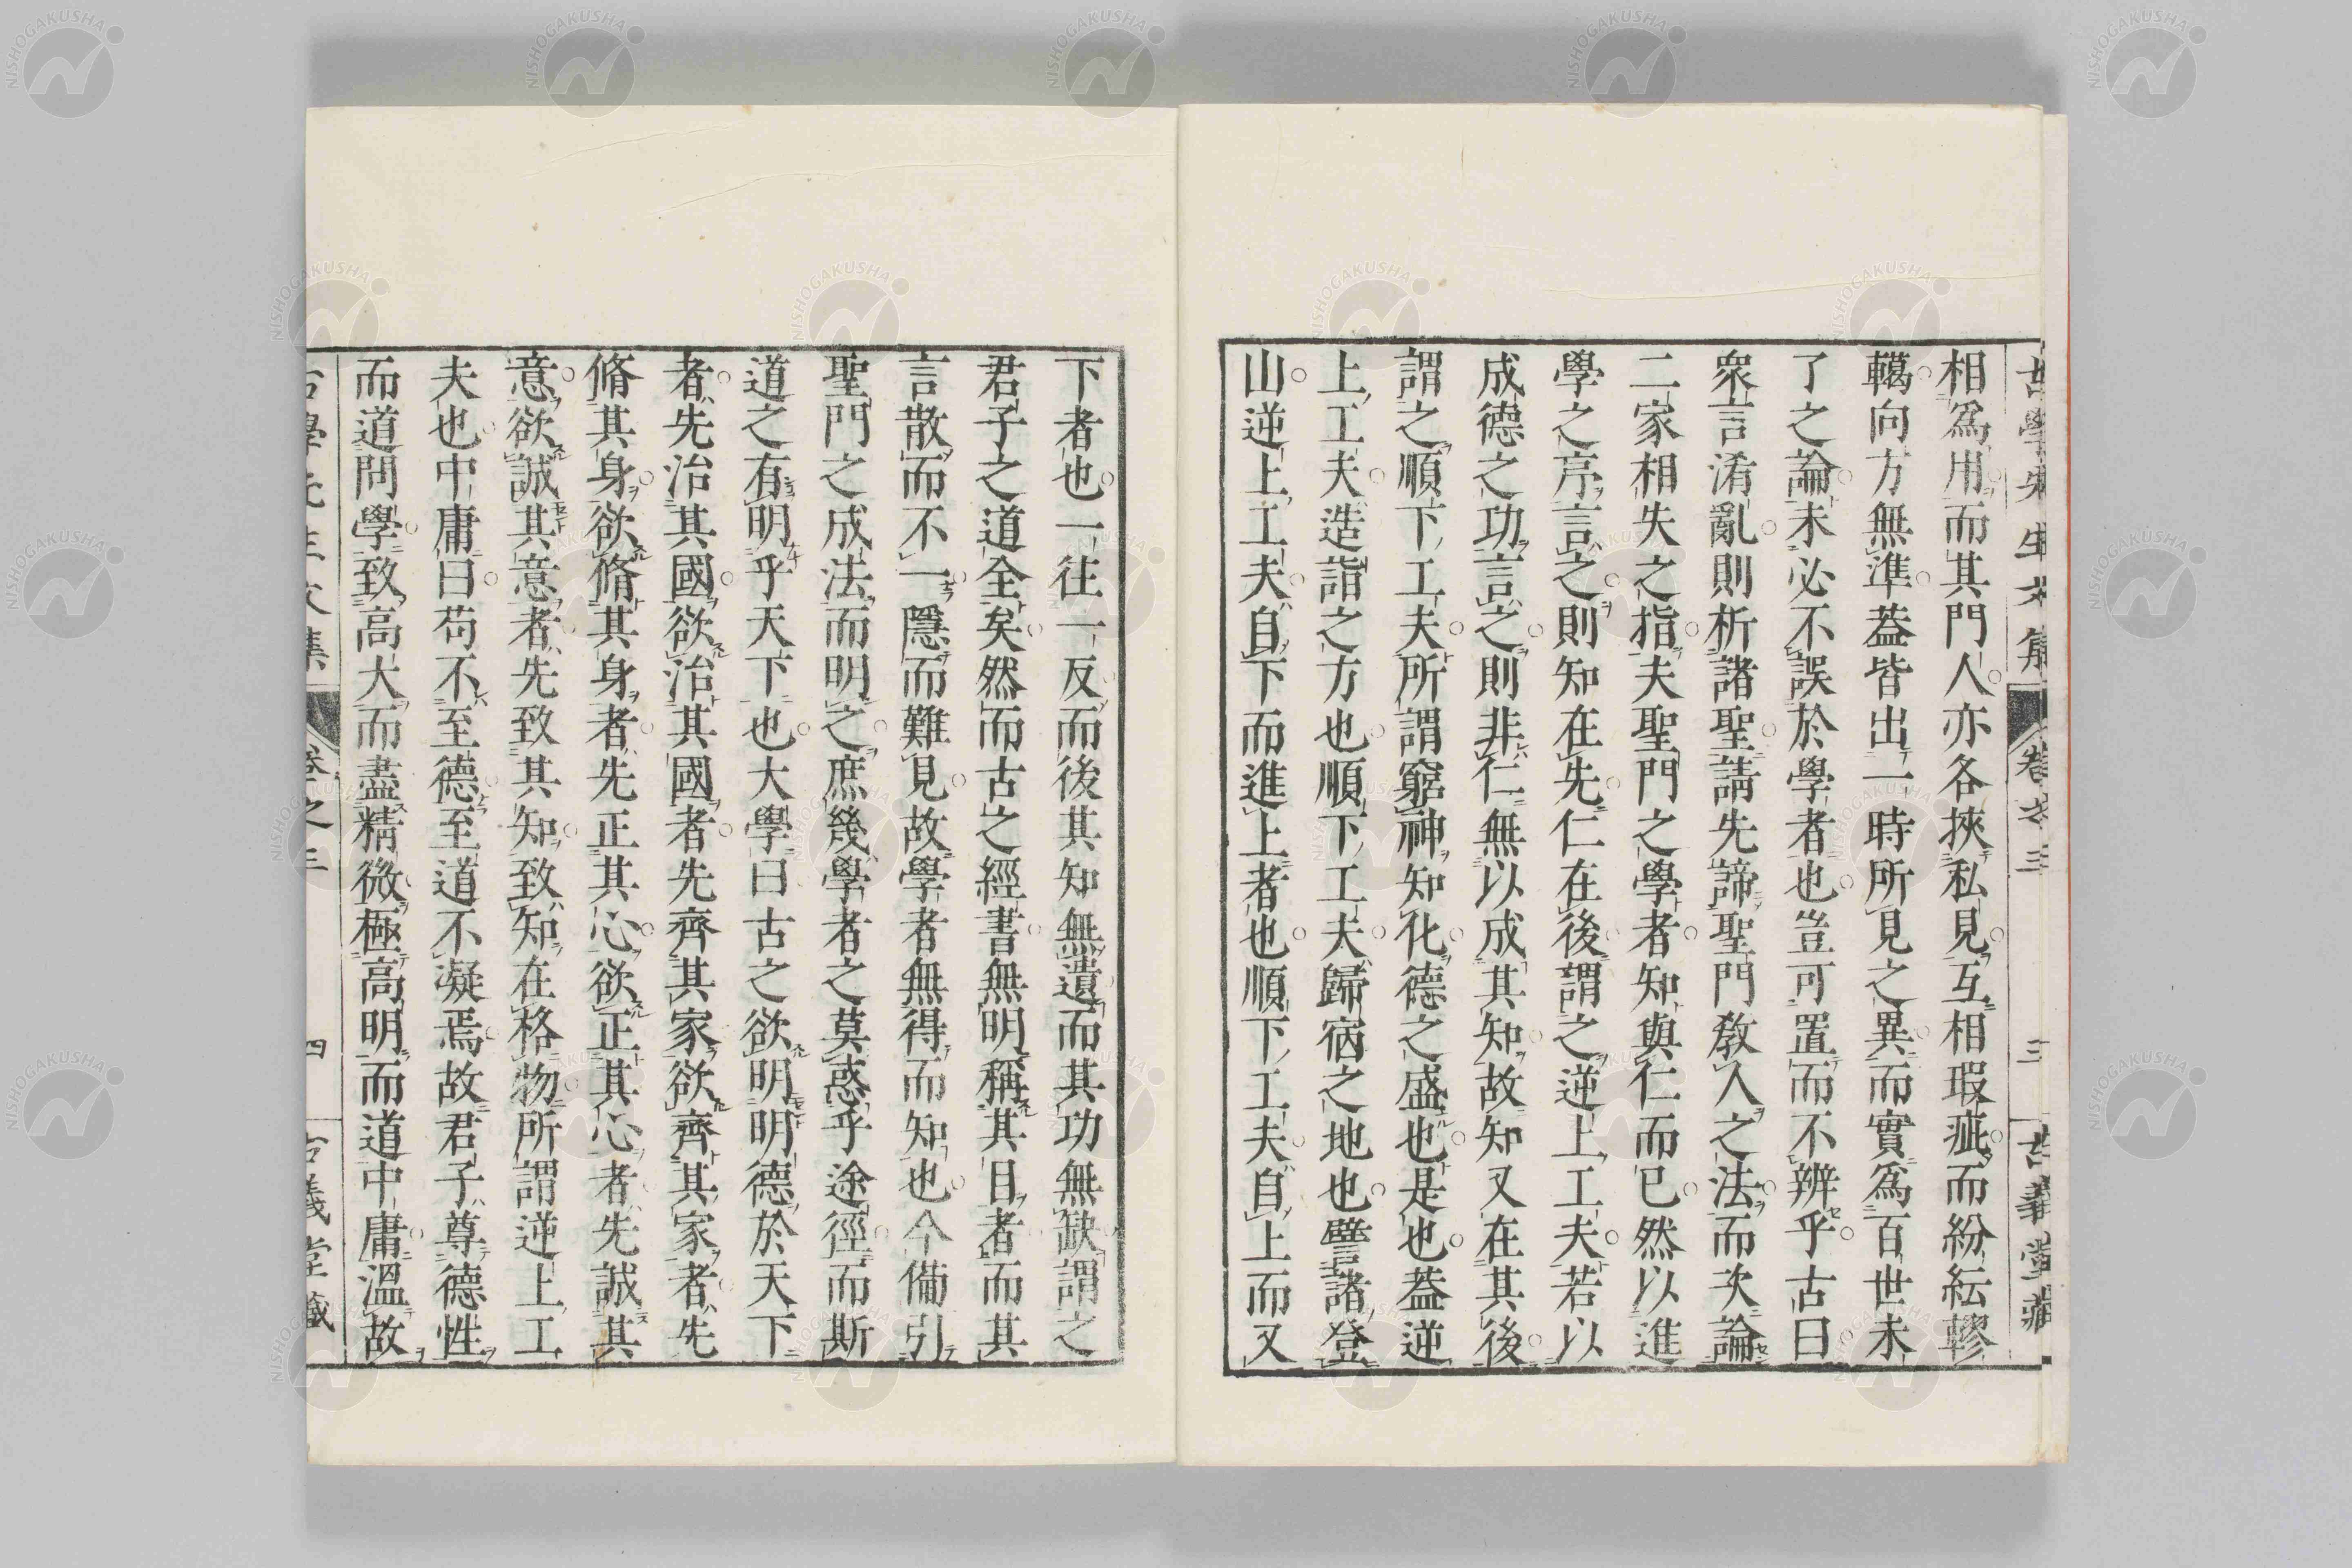 古學先生文集 卷之三 三 古義堂藏
相爲用而其門人亦各挾私見互相瑕疵而紛紜轇
轕向方無準葢皆出一時所見之異而實爲百世未
了之論未必不誤於學者也豈可置而不辨乎古曰
衆言淆亂則析諸聖請先諦聖門敎人之法而次論
二家相失之指夫聖門之學者知與仁而已然以進
學之序言之則知在先仁在後謂之逆上工夫若以
成德之功言之則非仁無以成其知故知又在其後
謂之順下工夫所謂窮神知化德之盛也是也葢逆
上工夫造詣之方也順下工夫歸宿之地也譬諸登
山逆上工夫自下而進上者也順下工夫自上而又
下者也一往一反而後其知無遺而其功無缺謂之
君子之道全矣然而古之經書無明稱其目者而其
言散而不一隱而難見故學者無得而知也今備引
聖門之成法而明之庶幾學者之莫惑乎途徑而斯
道之有明乎天下也大學曰古之欲明明德於天下
者先治其國欲治其國者先齊其家欲齊其家者先
脩其身欲脩其身者先正其心欲正其心者先誠其
意欲誠其意者先致其知致知在格物所謂逆上工
夫也中庸曰苟不至德至道不凝焉故君子尊德性
而道問學致高大而盡精微極高明而道中庸溫故
古學先生文集 卷之三 四 古義堂藏